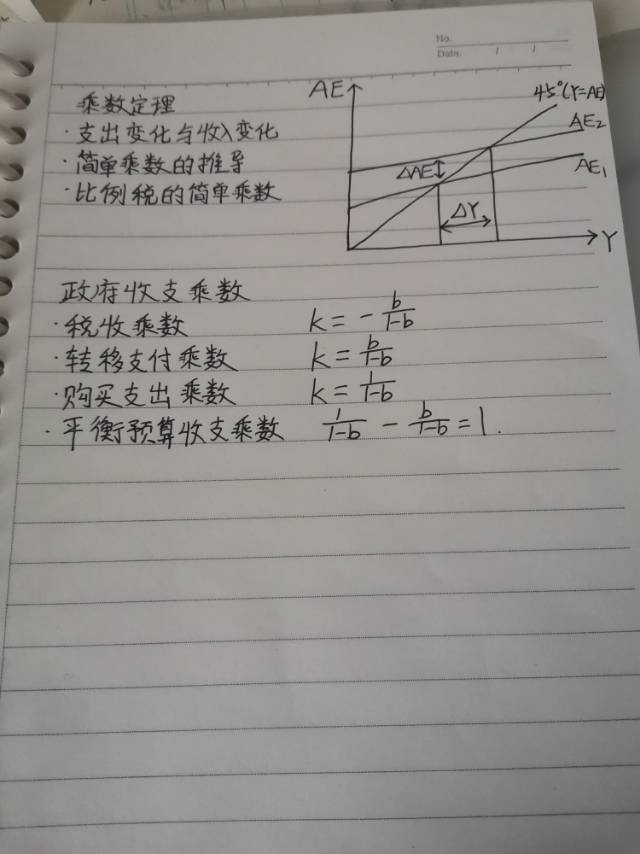 No.
Date. / /
乘数定理
·支出变化与收入变化
·简单乘数的推导
·比例税的简单乘数
AE
45°(Y=AE)
AE₂
AE₁
ΔAE
ΔY
Y
政府收支乘数
·税收乘数 k = - b/1-b
·转移支付乘数 k = b/1-b
·购买支出乘数 k = 1/1-b
·平衡预算收支乘数 1/1-b - b/1-b = 1.